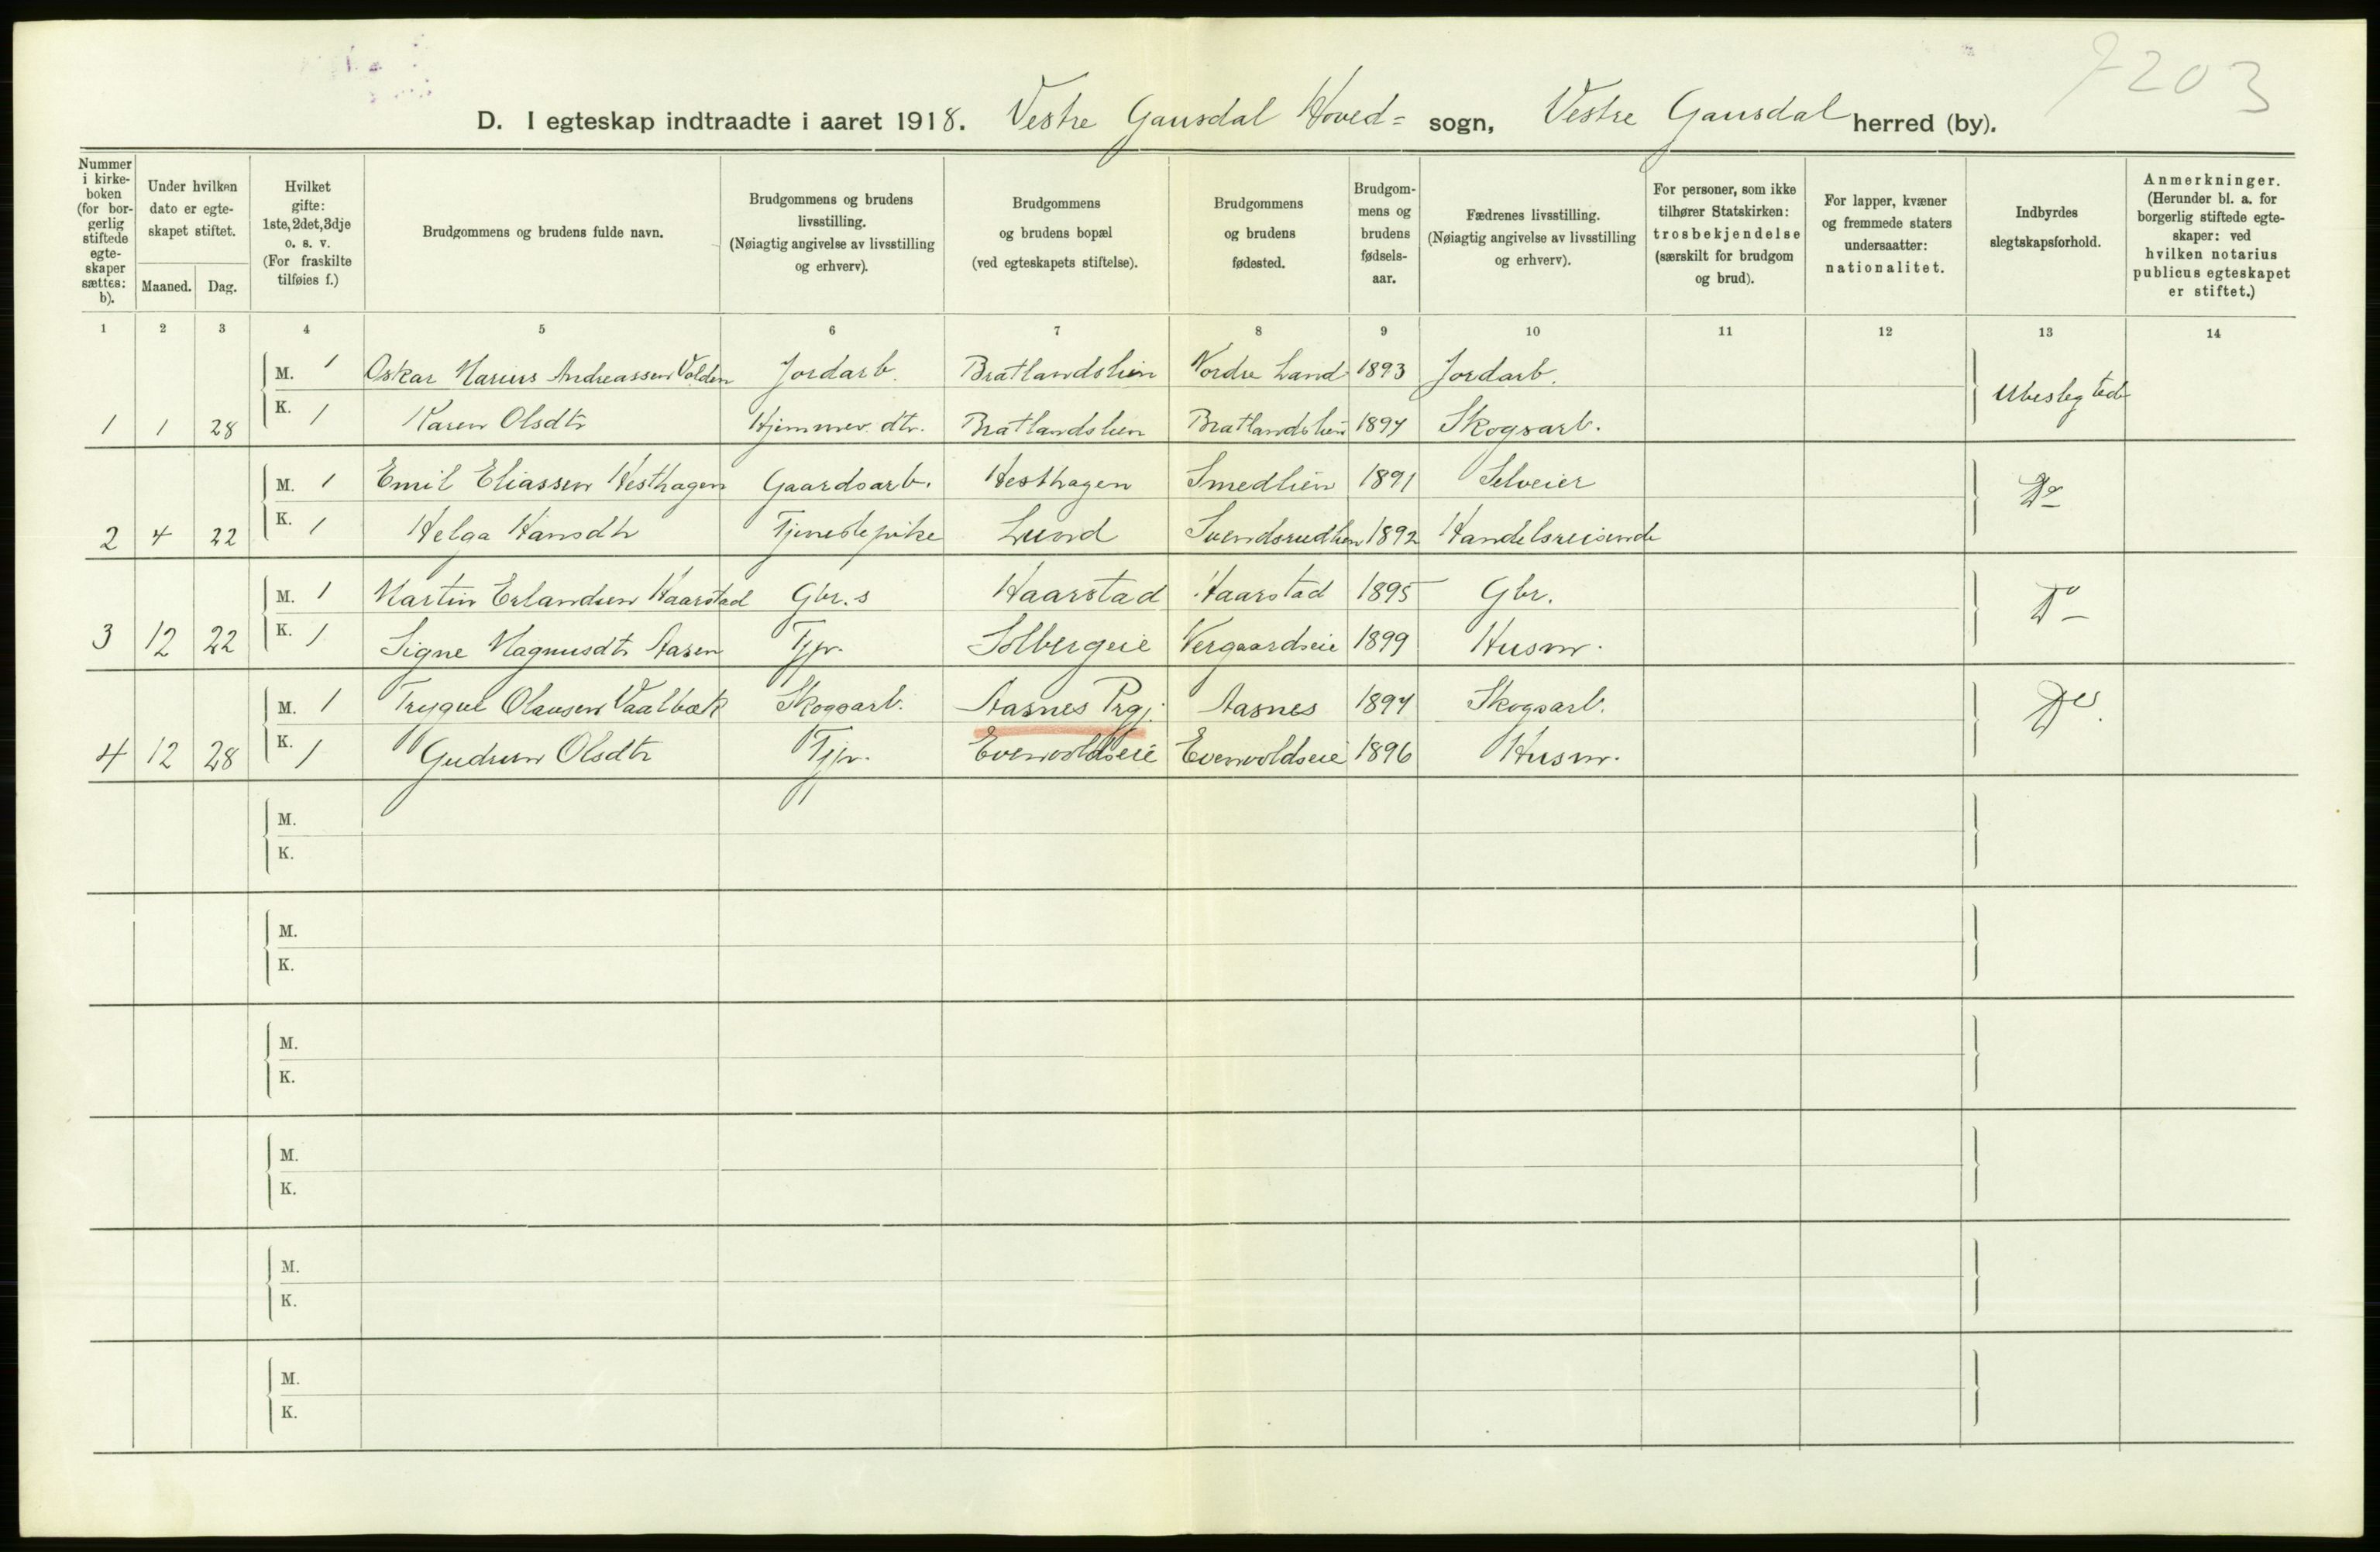 7203
D. I egteskap indtraadte i aaret 1918. Vestre Gausdal Hoved= sogn, Vestre Gausdal herred (by).
Nummer i kirke-boken (for bor-gerlig stiftede egte-skaper sættes: b).
Under hvilken dato er egte-skapet stiftet.
Maaned. Dag.
Hvilket gifte: 1ste, 2det, 3dje o. s. v. (For fraskilte tilføies f.)
Brudgommens og brudens fulde navn.
Brudgommens og brudens livsstilling. (Nøiagtig angivelse av livsstilling og erhverv).
Brudgommens og brudens bopæl (ved egteskapets stiftelse).
Brudgommens og brudens fødested.
Brudgom-mens og brudens fødsels-aar.
Fædrenes livsstilling. (Nøiagtig angivelse av livsstilling og erhverv).
For personer, som ikke tilhører Statskirken: trosbekjendelse (særskilt for brudgom og brud).
For lapper, kvæner og fremmede staters undersaatter: nationalitet.
Indbyrdes slegtskapsforhold.
Anmerkninger. (Herunder bl. a. for borgerlig stiftede egte-skaper: ved hvilken notarius publicus egteskapet er stiftet.)
1 2 3 4 5 6 7 8 9 10 11 12 13 14
M. 1 Oskar Marius Andreassen Volden Jordarb. Bratlandslien Nordre Land 1893 Jordarb. Ubeslegted
1 1 28 K. 1 Karen Olsdtr Hjemmev. dtr. Bratlandslien Bratlandslien 1897 Skogsarb.
M. 1 Emil Eliassen Hesthagen Gaardsarb. Hesthagen Smedlien 1891 Selveier Do
2 4 22 K. 1 Helga Hansdtr Tjenestepike Lund Svendsrudlien 1892 Handelsreisende
M. 1 Martin Erlandsen Haarstad Gbr. s Haarstad Haarstad 1895 Gbr. Do
3 12 22 K. 1 Signe Magnusdtr Aasen Tjp. Solbergeie Vergaardseie 1899 Husm.
M. 1 Trygve Olausen Vaalbæk Skogsarb. Aasnes Prgj. Aasnes 1894 Skogsarb. Do.
4 12 28 K. 1 Gudrun Olsdtr Tjp. Evenvoldseie Evenvoldseie 1896 Husm.
M.
K.
M.
K.
M.
K.
M.
K.
M.
K.
M.
K.